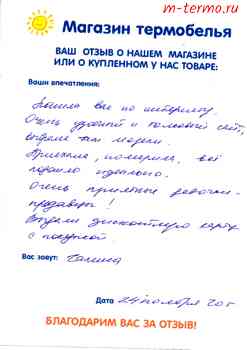 m-termo.ru
Магазин термобелья
ВАШ ОТЗЫВ О НАШЕМ МАГАЗИНЕ
ИЛИ О КУПЛЕННОМ У НАС ТОВАРЕ:
Ваши впечатления:
Нашла вас по интернету.
Очень удобный и толковый сайт,
выбрала там модели.
Приехала, померила, всё
подошло идеально.
Очень приятные девочки-
продавцы!
Выдали дисконтную карту
с покупкой.
Вас зовут: Галина
Дата 24 ноября 20
БЛАГОДАРИМ ВАС ЗА ОТЗЫВ!